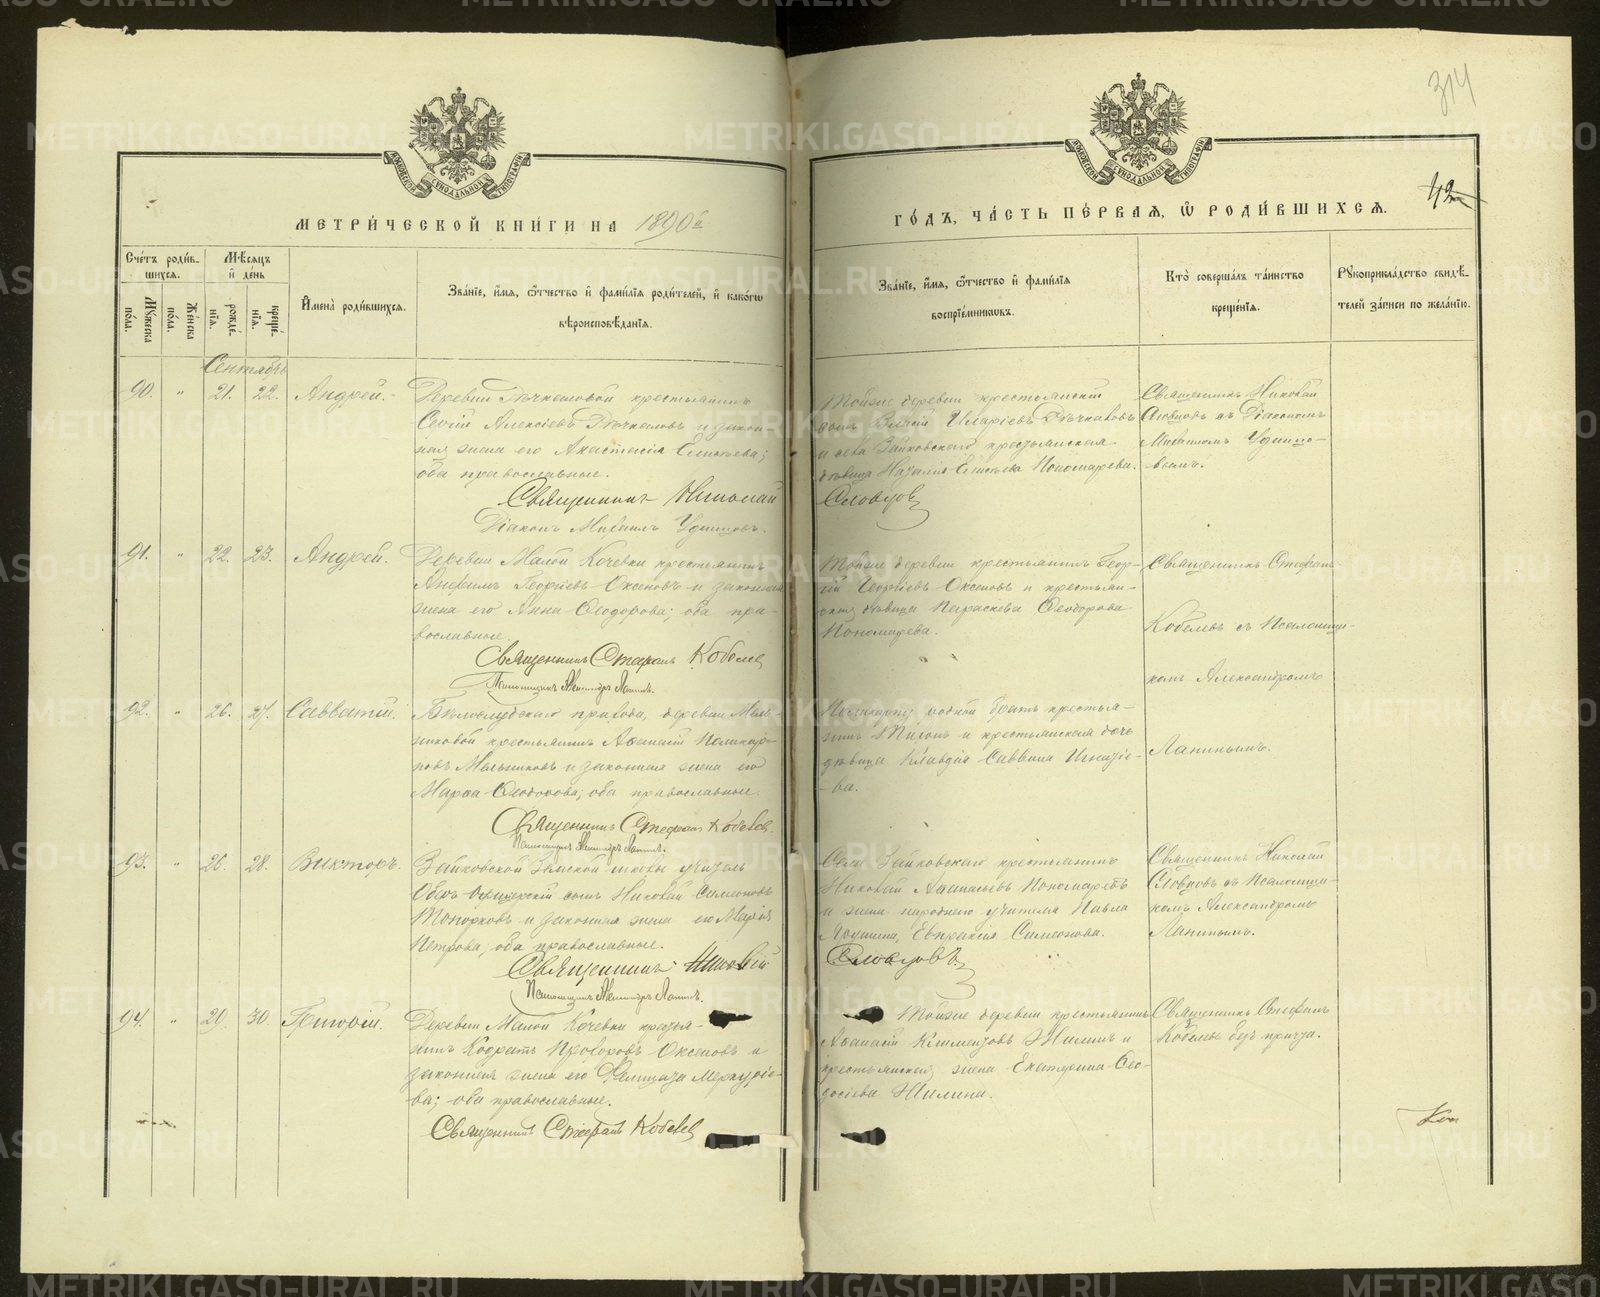 314
42
МЕТРИ́ЧЕСКОЙ КНИ́ГИ НА 1890й
ГО́ДЪ, ЧА́СТЬ ПЕ́РВАЯ, Ѡ РОДИ́ВШИХСѦ.
Сче́тъ роди́в-
шихся.
Мѣ́сяцъ
и҆ де́нь
Му́жеска
по́ла.
Же́нска
по́ла.
рожде́-
нїѧ.
креще́-
нїѧ.
И҆мена̀ роди́вшихся.
Зва́нїе, и҆́мѧ, ѻ҆́тчество и҆ фами́лїѧ роди́телей, и҆ како́гѡ
вѣроисповѣ́данїѧ.
Зва́нїе, и҆́мѧ, ѻ҆́тчество и҆ фами́лїѧ
воспрїе́мникѡвъ.
Кто̀ соверша́лъ та́инство
креще́нїѧ.
Рꙋкоприкла́дство свидѣ́-
телей за́писи по жела́нїю.
Сентябрь
90. " 21. 22. Андрей.
Деревни крестьянинъ
Алексіевъ и закон-
ная жена его Анастасія
оба православные.
Священникъ Николай
Діаконъ Михаилъ Удинцовъ.
Тойже деревни крестьянскій
сынъ Иларіевъ
и села Зайковскаго крестьянская
дѣвица Наталія Елисѣева Пономарева.
Словцов
Священникъ Николай
Словцовъ съ Діакономъ
Михаиломъ Удинцо-
вымъ.
91. " 22. 23. Андрей.
Деревни Малой Кочевки крестьянинъ
Георгіевъ Оксеновъ и законная
жена его Анна Ѳеодорова; оба пра-
вославные.
Священникъ Стефанъ Кобелев
Псаломщикъ Александръ Лапинъ.
Тойже деревни крестьянинъ Геор-
гій Георгіевъ Оксеновъ и крестьян-
ская дѣвица Параскева Ѳеодорова
Пономарева.
Священникъ Стефанъ
Кобелевъ съ Псаломщи-
комъ Александромъ
Лапинымъ.
92. " 26. 27. Савватій.
Бѣлослудскаго прихода, деревни Мель-
никовой крестьянинъ Аѳанасій Поликар-
повъ Мельниковъ и законная жена его
Марѳа Ѳеодорова; оба православные.
Священникъ Стефанъ Кобелев.
Псаломщикъ Александръ Лапинъ.
родной братъ крестья-
нинъ и крестьянская дочь
дѣвица Клавдія Саввина Игнатіе-
ва.
93. " 26. 28. Викторъ.
Зайковской Земской школы учитель
Оберъ-офицерскій сынъ Николай Симеоновъ
Топорковъ и законная жена его Марія
Петрова, оба православные.
Священникъ Николай
Псаломщикъ Александръ Лапинъ.
Села Зайковскаго крестьянинъ
Николай Аѳанасьевъ Пономаревъ
и жена народнаго учителя Павла
Евпраксія Симеонова.
Словцовъ
Священникъ Николай
Словцовъ съ Псаломщи-
комъ Александромъ
Лапинымъ.
94. " 29. 30. Григорій.
Деревни Малой Кочевки крестья-
нинъ Кодратъ Прохоровъ Оксеновъ и
законная жена его Фелицата Меркуріе-
ва; оба православные.
Священникъ Стефанъ Кобелев
Тойже деревни крестьянинъ
Аѳанасій Климентовъ Жилинъ и
крестьянская жена Екатерина Ѳео-
досіева Жилина.
Священникъ Стефанъ
Кобелевъ безъ причта.